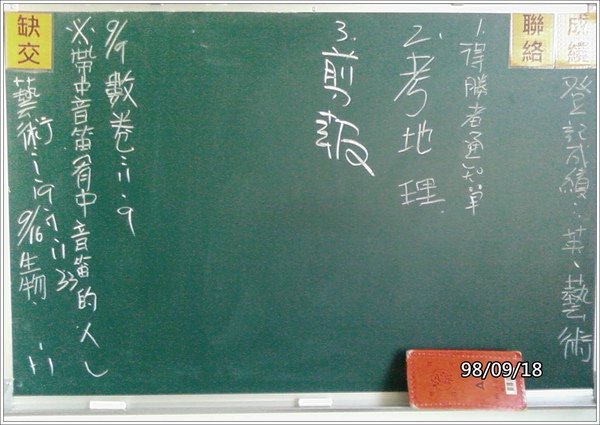 成績
登記成績：英、藝術
聯絡
1.得勝者通知單
2.考地理
3.剪報
缺交
9/9數卷：11.9
※帶中音笛(有中音笛的人)
藝術：19
9/16生物：11
98/09/18